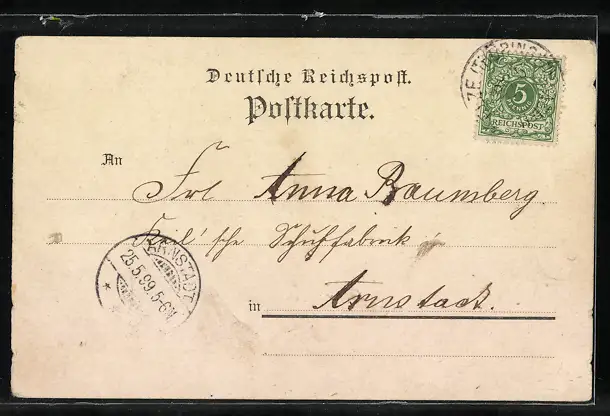 Deutsche Reichspost.
Postkarte.
5
PFENNIG
REICHSPOST
An Frl Anna Baumberg.
Keil'sche Schuhfabrick
in Arnstadt.
ARNSTADT
25.5.99.5-6N